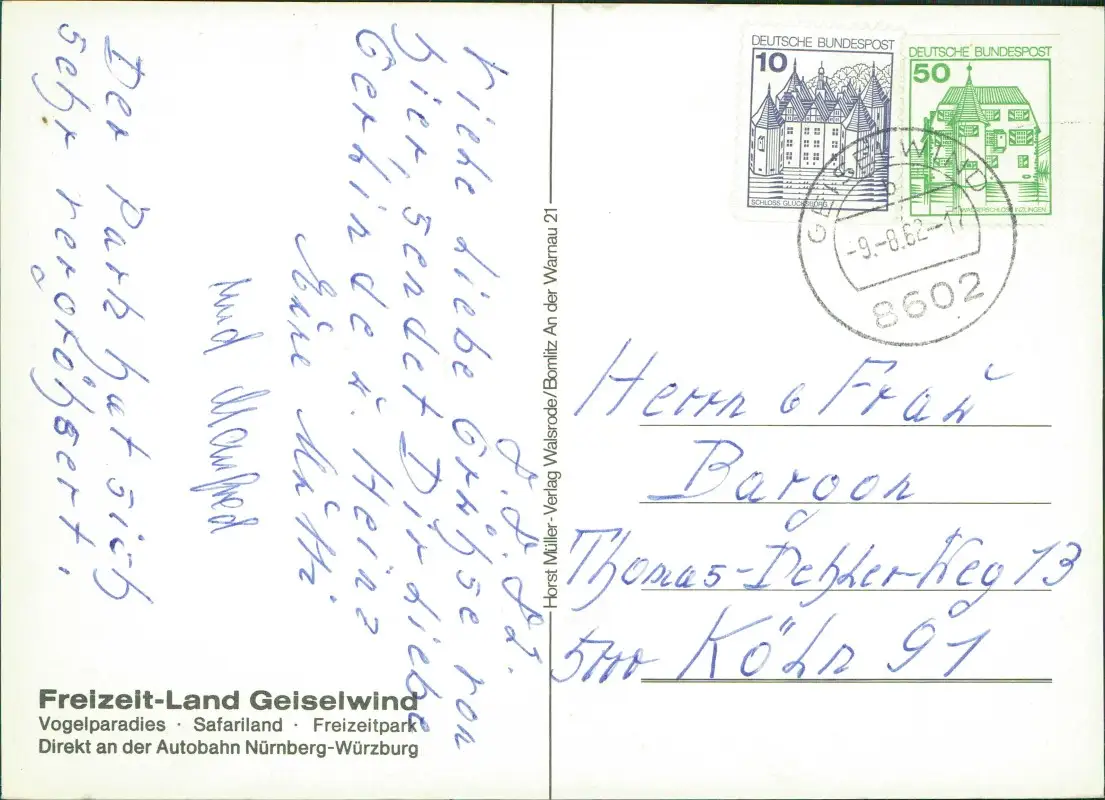 L. L. L.
Liebe liebe Grüße von
hier, sendet Dir liebe
Gerlinde u. Heinz
Eure Mutti.
und Manfred
Der Park hat sich
sehr vergrößert.
Freizeit-Land Geiselwind
Vogelparadies · Safariland · Freizeitpark
Direkt an der Autobahn Nürnberg-Würzburg
Horst Müller-Verlag Walsrode/Bomlitz An der Warnau 21
DEUTSCHE BUNDESPOST
10
SCHLOSS GLÜCKSBURG
DEUTSCHE BUNDESPOST
50
WASSERSCHLOSS INZLINGEN
GEISELWIND
b
-9.-8.82-17
8602
Herrn & Frau
Bargon
Thomas-Dehler-Weg 13
5000 Köln 91